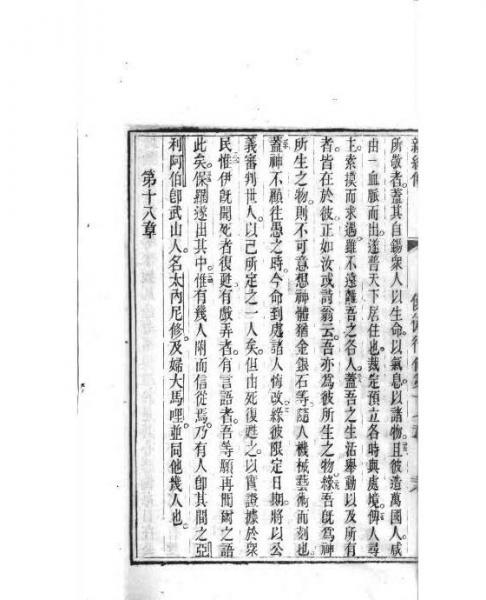 新經傳
所敬者蓋其自錫衆人以生命以氣息以諸物且彼造萬國人咸
由一血脈而出遂普天下居住也裁定預立各時與處境俾人尋
主索摸而求遇雖不遠離吾之各人蓋吾之生活舉動以及所有
者皆在於彼正如汝或詩翁云吾亦為彼所生之物緣吾旣為神
所生之物則不可意想神體猶金銀石等隨人機械藝術而刻也
蓋神不顧往愚之時今命到處諸人悔改緣彼限定日期將以公
義審判世人以己所定之一人矣但由死復甦之以實證據於衆
民惟伊旣聞死者復甦有戲弄者有言語者吾等願再聞爾之語
此矣保羅遂出其中惟有幾人附而信從焉乃有人卽其間之亞
利阿伯卽武山人名太內尼修及婦大馬哩並同他幾人也
第十八章